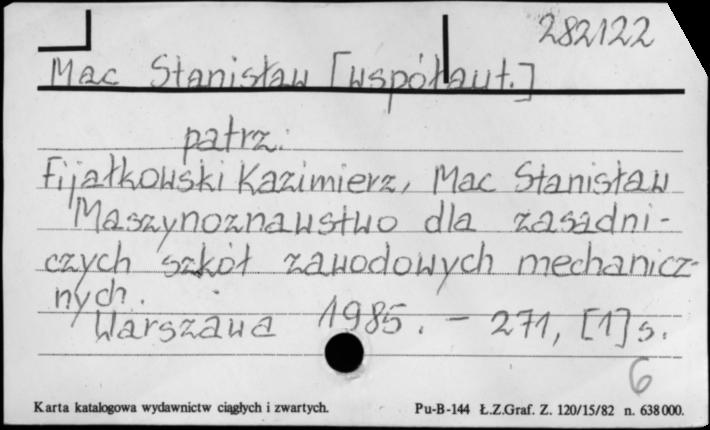 282122
Mac Stanisław [współaut.]
patrz:
Fijałkowski Kazimierz, Mac Stanisław
Maszynoznawstwo dla zasadni-
czych szkół zawodowych mechanicz-
nych.
Warszawa 1985. - 271, [1] s.
6
Karta katalogowa wydawnictw ciągłych i zwartych. Pu-B-144 Ł.Z.Graf. Z. 120/15/82 n. 638000.